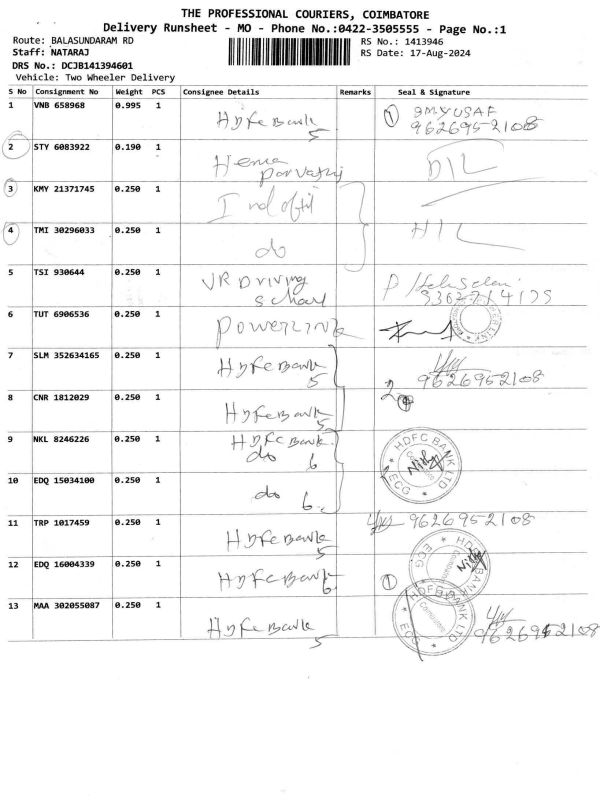 THE PROFESSIONAL COURIERS, COIMBATORE
Delivery Runsheet - MO - Phone No.:0422-3505555 - Page No.:1
Route: BALASUNDARAM RD
RS No.: 1413946
Staff: NATARAJ
RS Date: 17-Aug-2024
DRS No.: DCJB141394601
Vehicle: Two Wheeler Delivery
S No Consignment No Weight PCS Consignee Details Remarks Seal & Signature
1 VNB 658968 0.995 1 Hdfc Bank 5 1
9626952108
2 STY 6083922 0.190 1 Hema Parvathy D/L
3 KMY 21371745 0.250 1
4 TMI 30296033 0.250 1 do H/L
5 TSI 930644 0.250 1 VR Driving School
6 TUT 6906536 0.250 1 POWERLINK
7 SLM 352634165 0.250 1 Hdfc Bank 5 9626952108
8 CNR 1812029 0.250 1 Hdfc Bank 5 2
9 NKL 8246226 0.250 1 Hdfc Bank do 6 HDFC BANK LTD ECG
10 EDQ 15034100 0.250 1 do 6
11 TRP 1017459 0.250 1 Hdfc Bank 5 9626952108
12 EDQ 16004339 0.250 1 Hdfc Bank 6 1 HDFC BANK LTD ECG Coimbatore
13 MAA 302055087 0.250 1 Hdfc Bank 5 HDFC BANK LTD ECG Coimbatore 9626952108